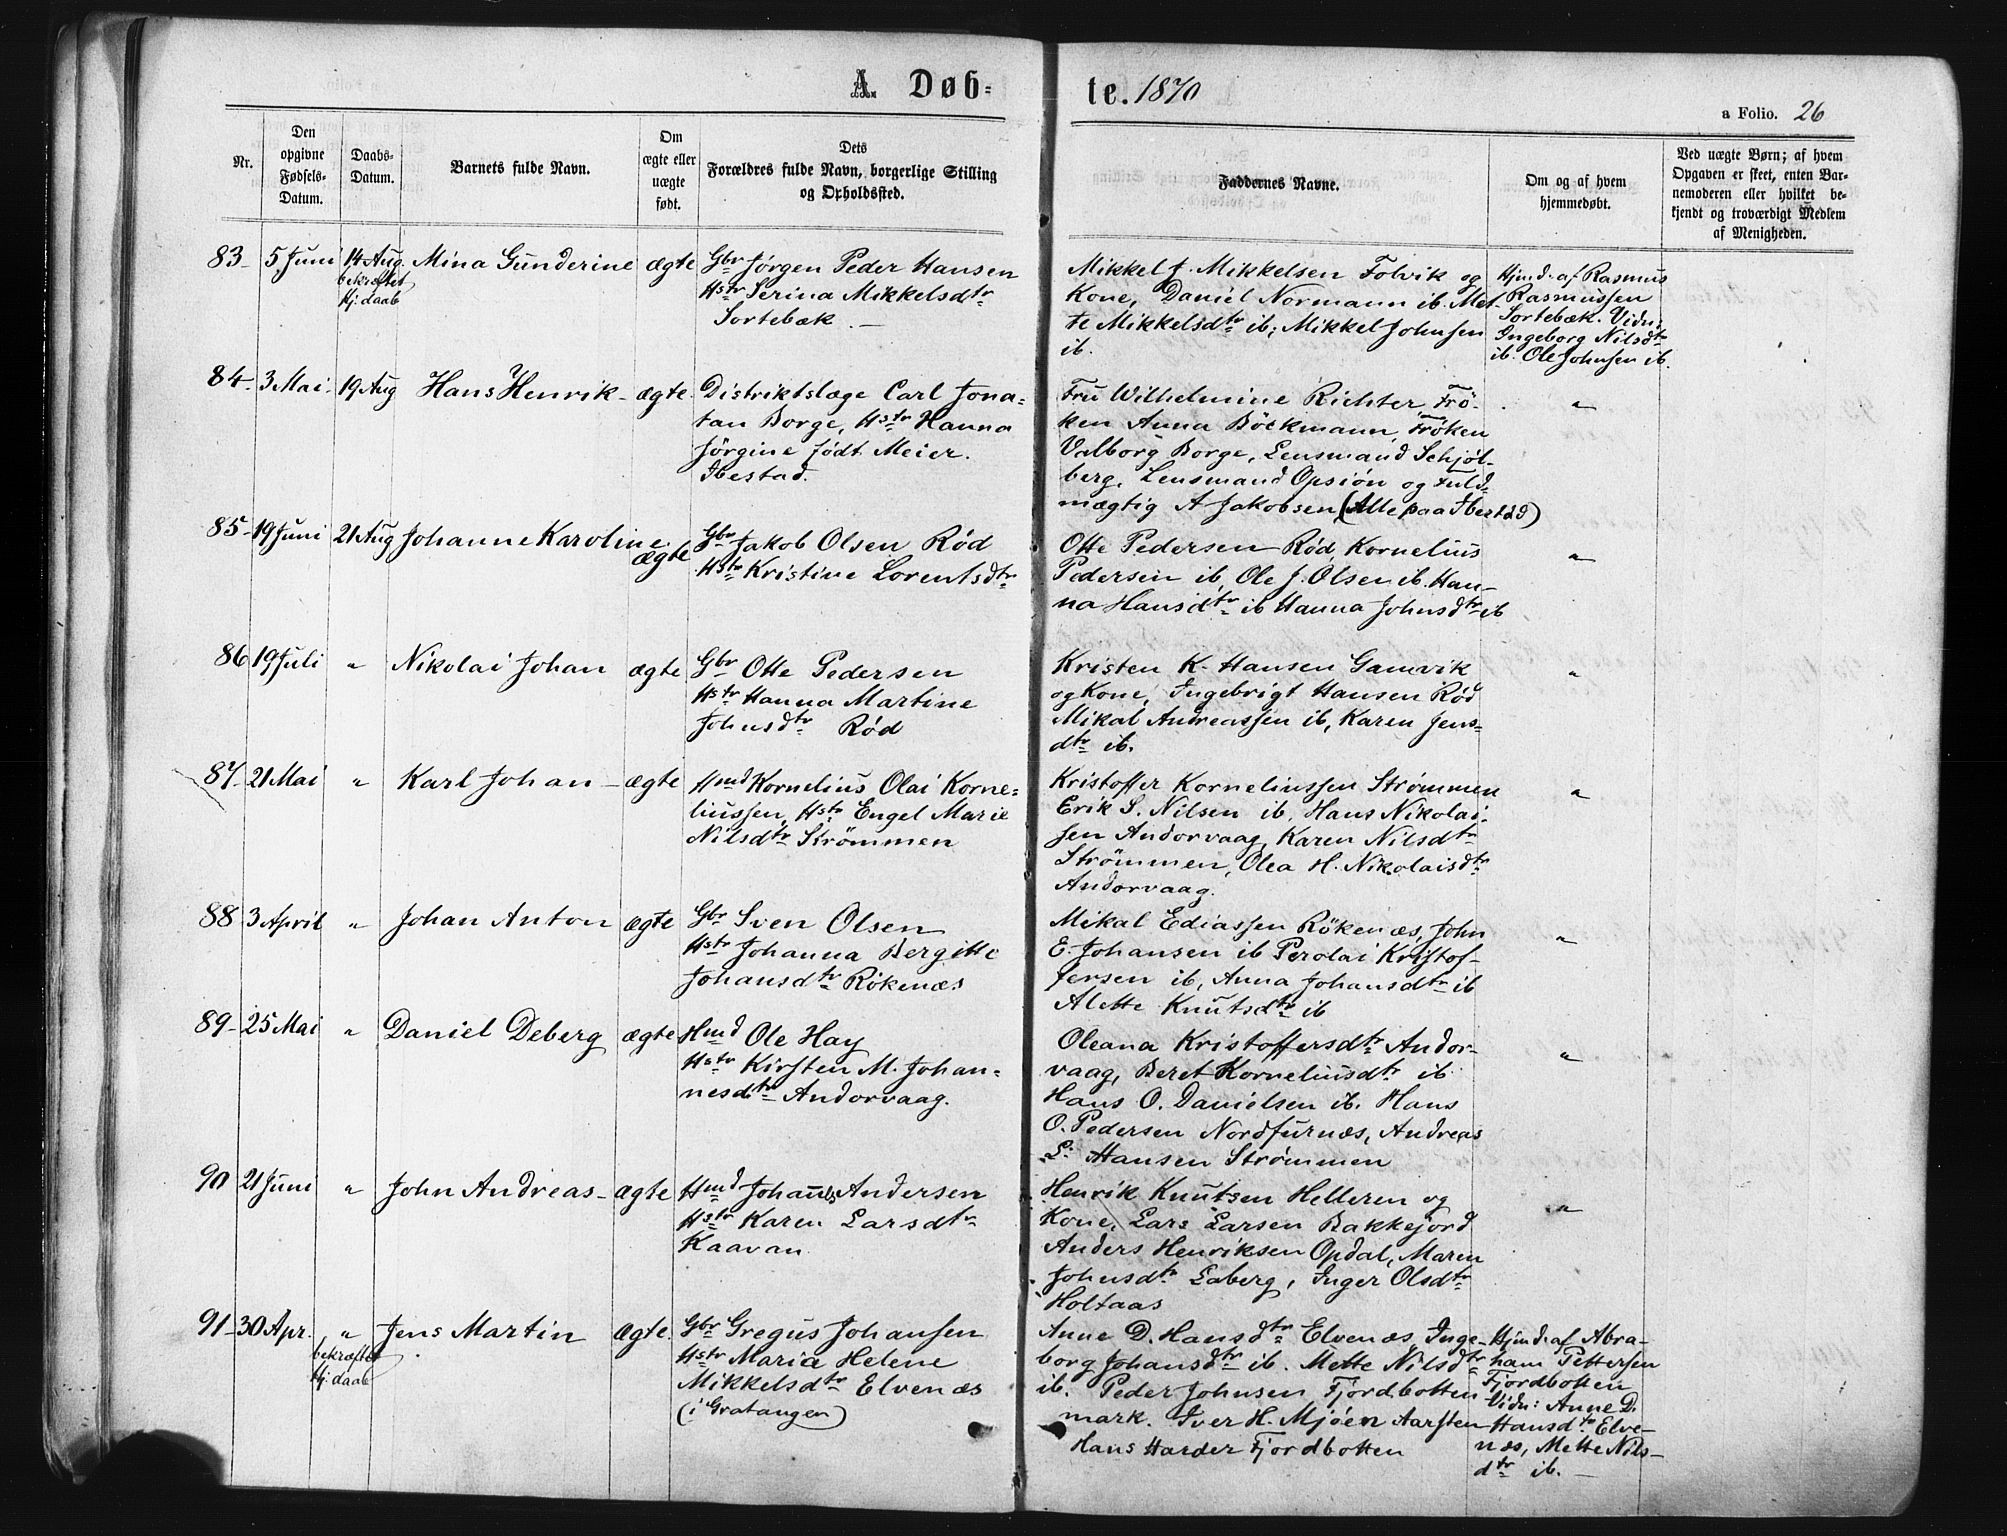 A. Døb-
te. 1870
a Folio. 26
Nr.
Den opgivne Fødsels-Datum.
Daabs-Datum.
Barnets fulde Navn.
Om ægte eller uægte født.
Dets Forældres fulde Navn, borgerlige Stilling og Opholdssted.
Faddernes Navne.
Om og af hvem hjemmedøbt.
Ved uægte Børn; af hvem Opgaven er skeet, enten Barnemoderen eller hvilket bekjendt og troværdigt Medlem af Menigheden.
83 5 Juni 14 Aug. Mina Gunderine ægte
bekræftet
Hj: daab
Gbr Jørgen Peder Hansen
Hstr Serina Mikkelsdtr
Sortebæk. —
Mikkel J. Mikkelsen Folvik og
Kone, Daniel Normann ib. Met-
te Mikkelsdtr ib; Mikkel Johnsen
ib.
Hjmd. af Rasmus
Rasmussen
Sortebæk. Vidn:
Ingeborg Nilsdtr
ib. Ole Johnsen ib.
84 3 Mai. 19 Aug Hans Henrik ægte.
Distriktslæge Carl Jona-
tan Borge, Hstr Hanna
Jörgine födt Meier.
Ibestad.
Fru Wilhelmine Richter, Frö-
ken Anna Böckmann, Fröken
Valborg Borge, Lensmand Schjöl-
berg, Lensmand Opsiön og Fuld-
mægtig A Jakobsen (Alle paa Ibestad)
"
85 19 Juni 21 Aug Johanne Karoline ægte
Gbr Jakob Olsen Rød
Hstr Kristine Lorentsdtr
Otte Pedersen Rød, Kornelius
Pedersen ib, Ole J. Olsen ib. Han-
na Hansdtr ib Hanna Johnsdtr ib
"
86 19 Juli " Nikolai Johan ægte
Gbr Otte Pedersen
Hstr Hanna Martine
Johnsdtr Rød
Kristen K. Hansen Gamvik
og Kone, Ingebrigt Hansen Rød
Mikal Andreassen ib, Karen Jens-
dtr ib.
"
87 21 Mai " Karl Johan ægte
Hmd Kornelius Olai Korne-
liussen, Hstr Engel Marie
Nilsdtr Strömmen
Kristoffer Korneliussen Strømmen
Erik S. Nilsen ib, Hans Nikolai-
sen Andorvaag, Karen Nilsdtr
Strömmen, Olea H. Nikolaisdtr
Andorvaag.
"
88 3 April " Johan Anton ægte
Gbr Sven Olsen
Hstr Johanna Bergitte
Johansdtr Rökenæs
Mikal Ediassen Rökenæs, John
E. Johansen ib Perolai Kristof-
fersen ib, Anna Johansdtr ib
Alette Knutsdtr ib
"
89 25 Mai " Daniel Deberg ægte
Hmd Ole Hay
Hstr Kirsten M. Johan-
nesdtr Andorvaag.
Oleana Kristoffersdtr Andor-
vaag, Beret Korneliusdtr ib
Hans O. Danielsen ib. Hans
O. Pedersen Nordfurnæs, Andreas
L. Hansen Strömmen
"
90 21 Juni " John Andreas ægte
Hmd Johan Andersen
Hstr Karen Larsdtr
Kaavan
Henrik Knutsen Helleren og
Kone, Lars Larsen Bakkejord
Anders Henriksen Opdal, Maren
Johnsdtr Laberg, Inger Olsdtr
Holtaas
"
91 30 Apr. " Jens Martin ægte.
bekræftet
Hj: daab
Gbr Gregus Johansen
Hstr Maria Helene
Mikkelsdtr Elvenæs
(i Gratangen)
Anne D. Hansdtr Elvenæs, Inge-
borg Johansdtr ib. Mette Nilsdtr
ib. Peder Johnsen Fjordbotten
mark. Iver H. Mjöen Aarsten
Hans Harder Fjordbotten
Hjmd. af Abra-
ham Pettersen
Fjordbotten
Vidn: Anne D.
Hansdtr Elve-
næs, Mette Nils-
dtr ib. —